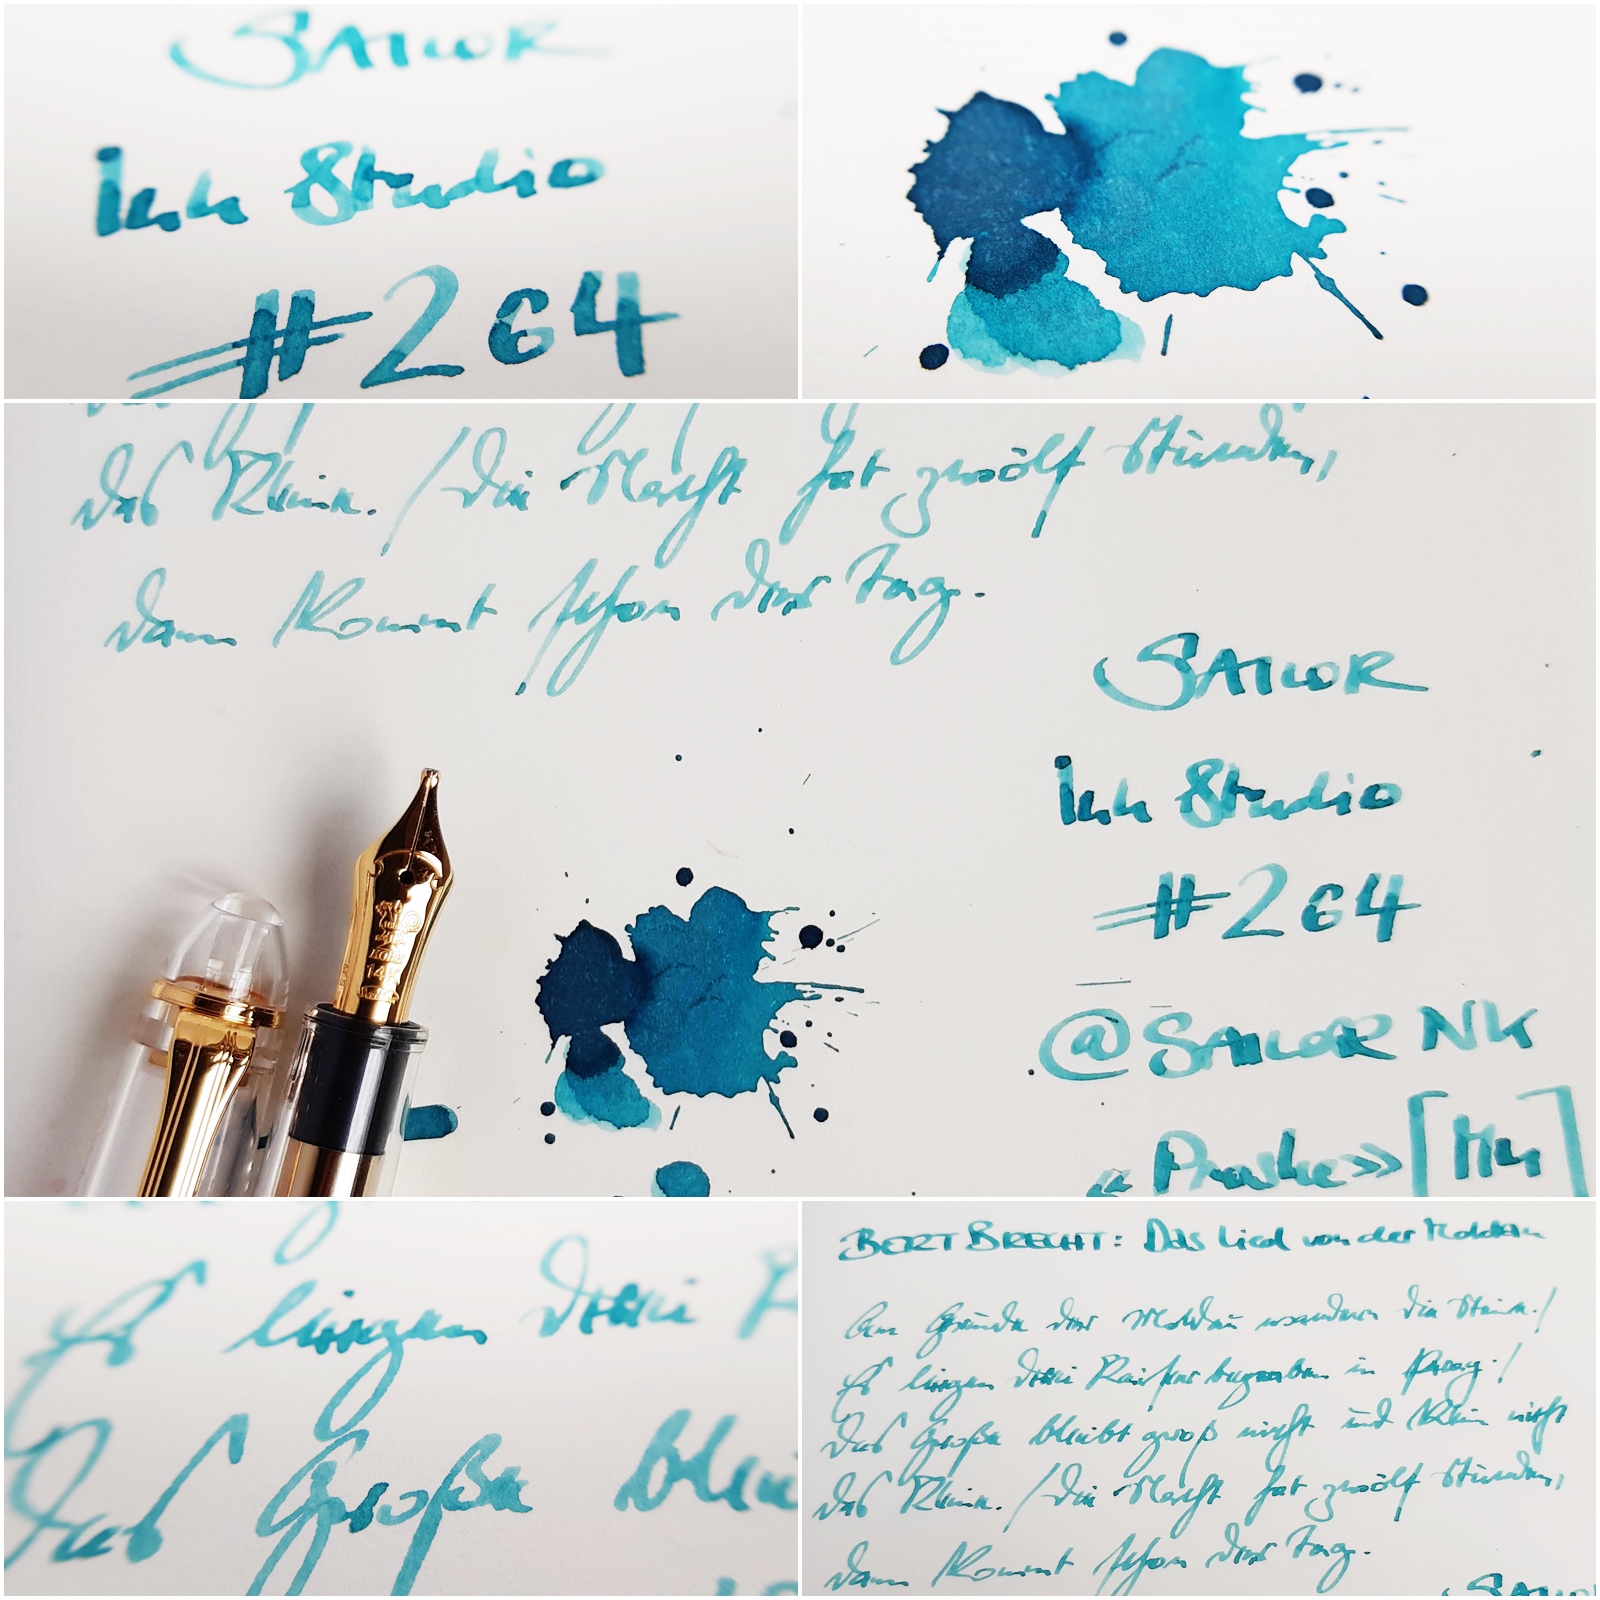 SAILOR
Ink Studio
#264
das Kleine. / Die Nacht hat zwölf Stunden,
dann kommt schon der Tag.
SAILOR
Ink Studio
#264
@SAILOR NK
14K
Es liegen drei
Das Große blei
BERT BRECHT: Das Lied von der Moldau
Am Grunde der Moldau wandern die Steine./
Es liegen drei Kaiser begraben in Prag./
Das Große bleibt groß nicht und klein nicht
das Kleine. / Die Nacht hat zwölf Stunden,
dann kommt schon der Tag.